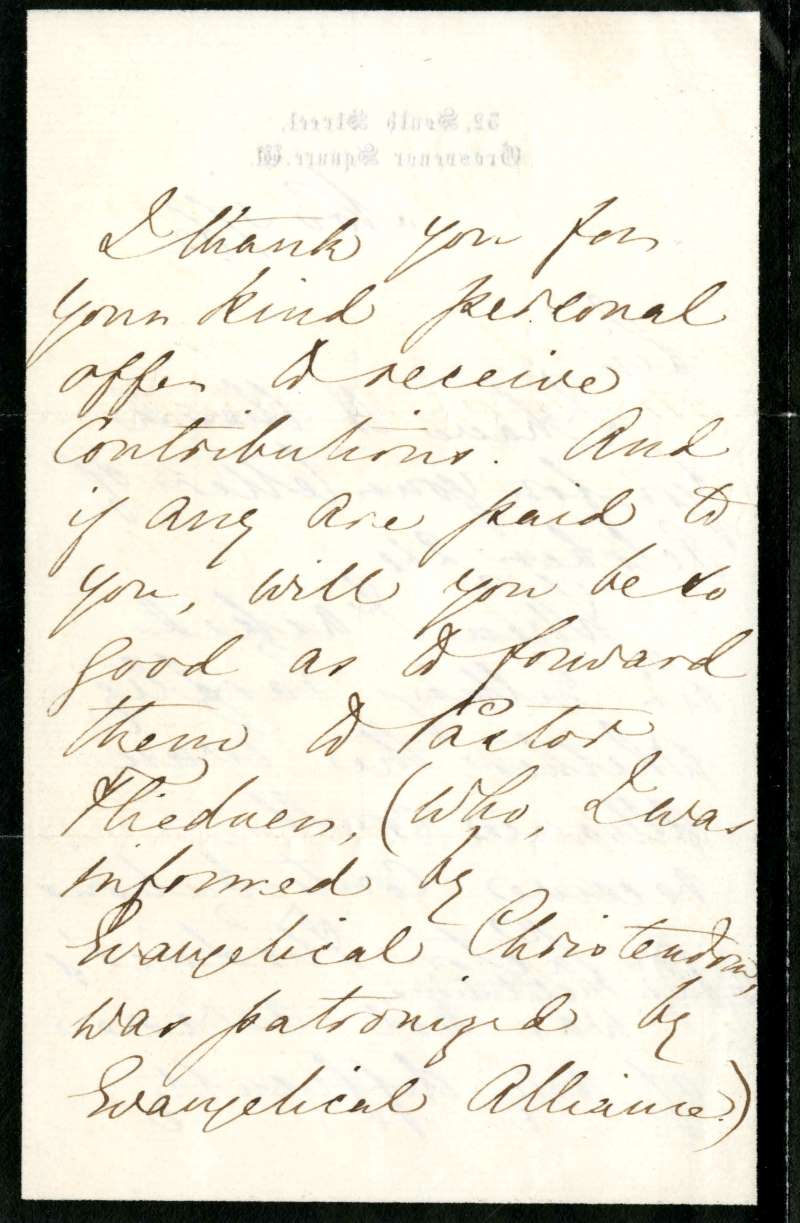 32, South Street,
Grosvenor Square. W.
I thank you for
your kind personal
offer to receive
Contributions. And
if any are paid to
you, will you be so
good as to forward
them to Pastor
Fliedner, (who, I was
informed by
Evangelical Christendom,
was patronized by
Evangelical Alliance.)